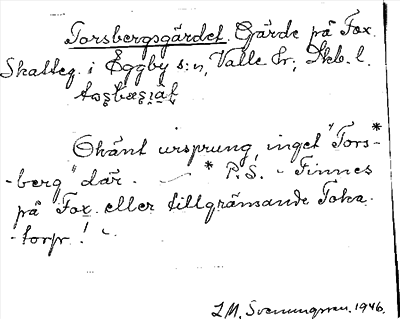 Torsbergsgärdet. Gärde på Fox.
Skatteg. i Eggby s:n, Valle hr, Skb. l.
Okänt ursprung, inget "Tors-*
-berg" där. — * P.S. - Finnes
på Fox. eller tillgränsande Toka-
-torp!
L.M. Svenungsson. 1946.